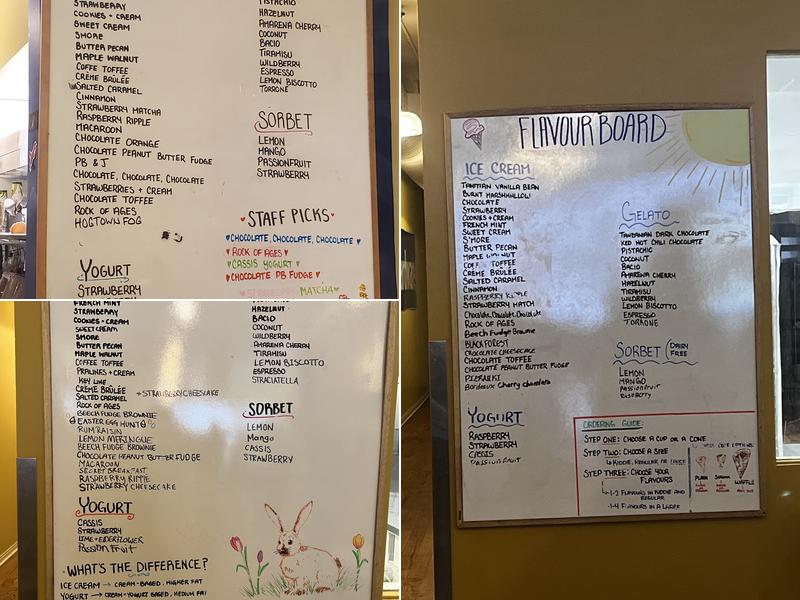 STRAWBERRY
COOKIES + CREAM
SWEET CREAM
SMORE
BUTTER PECAN
MAPLE WALNUT
COFFE TOFFEE
CRÈME BRÛLÉE
SALTED CARAMEL
CINNAMON
STRAWBERRY MATCHA
RASPBERRY RIPPLE
MACAROON
CHOCOLATE ORANGE
CHOCOLATE PEANUT BUTTER FUDGE
PB & J
CHOCOLATE, CHOCOLATE, CHOCOLATE
STRAWBERRIES + CREAM
CHOCOLATE TOFFEE
ROCK OF AGES
HOGTOWN FOG
YOGURT
STRAWBERRY
PISTACHIO
HAZELNUT
AMARENA CHERRY
COCONUT
BACIO
TIRAMISU
WILDBERRY
ESPRESSO
LEMON BISCOTTO
TORRONE
SORBET
LEMON
MANGO
PASSIONFRUIT
STRAWBERRY
STAFF PICKS
CHOCOLATE, CHOCOLATE, CHOCOLATE
ROCK OF AGES
CASSIS YOGURT
CHOCOLATE PB FUDGE
STRAWBERRY MATCHA
FRENCH MINT
STRAWBERRY
COOKIES + CREAM
SWEET CREAM
SMORE
BUTTER PECAN
MAPLE WALNUT
COFFEE TOFFEE
PRALINES + CREAM
KEY LIME
CRÈME BRÛLÉE
SALTED CARAMEL
ROCK OF AGES
BEECH FUDGE BROWNIE
EASTER EGG HUNT
RUM RAISIN
LEMON MERINGUE
BEECH FUDGE BROWNIE
CHOCOLATE PEANUT BUTTER FUDGE
MACAROON
SECRET BREAKFAST
RASPBERRY RIPPLE
STRAWBERRY CHEESECAKE
+ STRAWBERRY CHEESECAKE
YOGURT
CASSIS
STRAWBERRY
LIME + ELDERFLOWER
Passion Fruit
WHAT'S THE DIFFERENCE?
ICE CREAM → CREAM-BASED, HIGHER FAT
YOGURT → CREAM-YOGURT BASED, MEDIUM FAT
HAZELNUT
BACIO
COCONUT
WILDBERRY
AMARENA CHERRY
TIRAMISU
LEMON BISCOTTO
ESPRESSO
STRACIATELLA
SORBET
LEMON
Mango
CASSIS
STRAWBERRY
FLAVOUR BOARD
ICE CREAM
TAHITIAN VANILLA BEAN
BURNT MARSHMALLOW
CHOCOLATE
STRAWBERRY
COOKIES + CREAM
FRENCH MINT
SWEET CREAM
S'MORE
BUTTER PECAN
MAPLE
TOFFEE
CRÈME BRÛLÉE
SALTED CARAMEL
CINNAMON
RASPBERRY RIPPLE
STRAWBERRY MATCH
Chocolate, Chocolate, Chocolate
ROCK OF AGES
Beech Fudge Brownie
BLACK FOREST
CHOCOLATE CHEESECAKE
CHOCOLATE TOFFEE
CHOCOLATE PEANUT BUTTER FUDGE
Bordeaux Cherry chocolate
YOGURT
RASPBERRY
STRAWBERRY
CASSIS
PASSIONFRUIT
GELATO
TANZANIAN DARK CHOCOLATE
RED HOT CHILI CHOCOLATE
PISTACHIC
COCONUT
BACIO
AMARENA CHERRY
HAZELNUT
TIRAMISU
WILDBERRY
LEMON BISCOTTO
ESPRESSO
TORRONE
SORBET (DAIRY FREE)
LEMON
MANGO
Passionfruit
RASPBERRY
ORDERING GUIDE:
STEP ONE: CHOOSE A CUP OR A CONE
STEP TWO: CHOOSE A SIZE
↳ KIDDIE, REGULAR OR LARGE
STEP THREE: CHOOSE YOUR FLAVOURS
1-2 FLAVOURS IN KIDDIE AND REGULAR
1-4 FLAVOURS IN A LARGE
PLAIN
SUGAR
WAFFLE